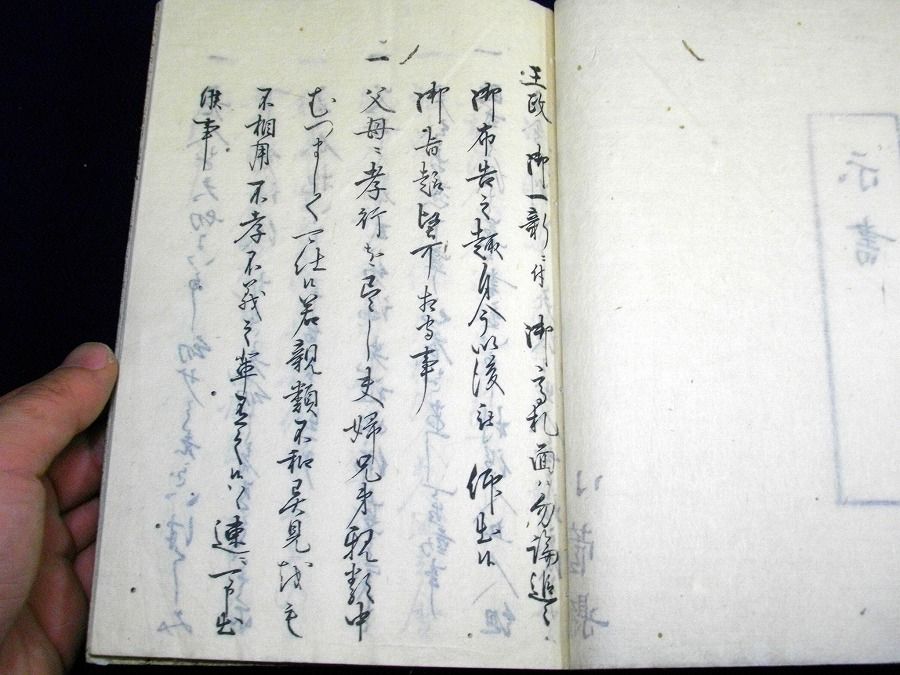 王政 御一新ニ付 御高札面ハ勿論追々
御布告之趣自今以後被 仰出候
御旨趣堅可相守事
一
父母ニ孝行を尽し夫婦兄弟親類中
むつましく可仕候若親類不和異見越も
不相用不孝不義之輩有之候ハヽ速ニ可申出
候事